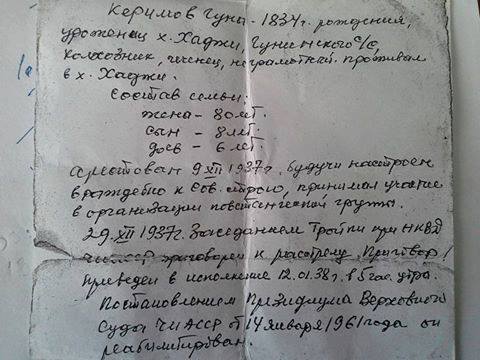 Керимов Гуна - 1834г. рождения,
уроженец х. Хаджи, Гунинского с/с,
колхозник, чеченец, неграмотный. проживал
в х. Хаджи.
Состав семьи:
жена - 80 лет.
сын - 8 лет.
дочь - 6 лет.
Арестован 9 XII 1937г. Будучи настроен
враждебно к Сов. строю, принимал участие
в организации повстанческой группы.
29. XII 1937г. Заседанием Тройки при НКВД
ЧИАССР приговорен к расстрелу. Приговор
приведен в исполнение 12.01.38г. в 5 час. утра.
Постановлением Президиума Верховного
Суда ЧИАССР от 14 января 1961 года он
реабилитирован.